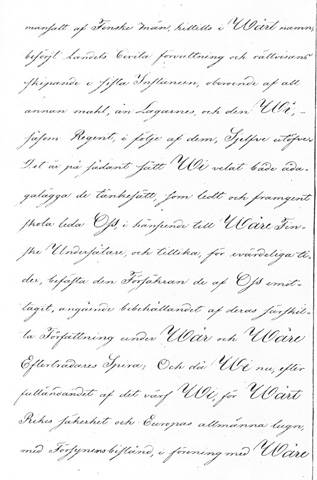 mansatt af Finske män, hittills i Wårt namn,
besörjt Landets Civila förvaltning och rättvisans
skipande i sista Instancen, oberoende af all
annan makt, än Lagarnes, och den Wi, –
såsom Regent, i följe af dem, Sjelfve utöfve.
Det är på sådant sätt Wi velat både åda-
galägga de tänkesätt, som ledt och framgent
skola leda Oss, i hänseende till Wåre Fin-
ske Undersåtare, och tillika, för evärdeliga ti-
der, befästa den Försäkran de af Oss emot-
tagit, angående bibehållandet af deras särskil-
la Författning under Wår och Wåre
Efterträdares Spira; Och då Wi nu, efter
fulländandet af det värf Wi, för Wårt
Rikes säkerhet och Europas allmänna lugn,
med Försynens bistånd, i förening med Wåre